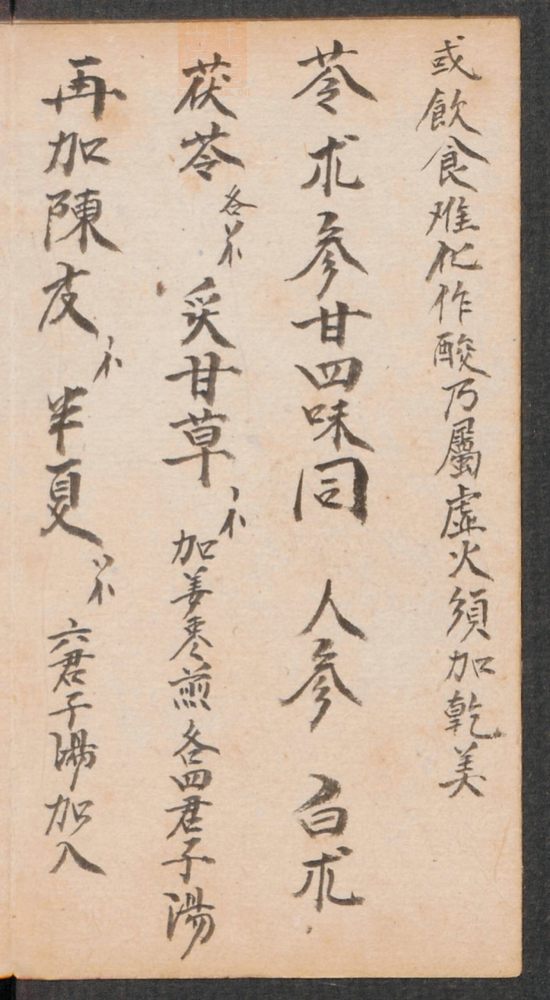 或飲食难化作酸乃屬虛火須加乾姜
苓朮參甘四味同 人參 白朮
茯苓 各 炙甘草 加姜枣煎 名四君子湯
再加陳皮 半夏 六君子湯加入